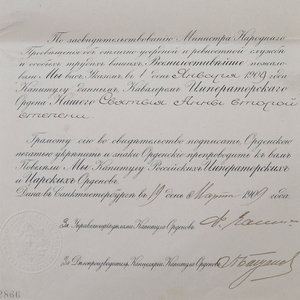 По засвидѣтельствованію Министра Народнаго
Просвѣщенія объ отлично усердной и ревностной службѣ
и особыхъ трудахъ вашихъ, Всемилостивѣйше пожало-
вали Мы васъ Указомъ въ 1 день Января 1909 года
Капитулу даннымъ, Кавалеромъ Императорскаго
Ордена Нашего Святыя Анны второй
степени
Грамоту сію во свидѣтельство подписать, Орденскою
печатью укрѣпить и знаки Орденскіе препроводить къ вамъ
Повелѣли Мы Капитулу Россійскихъ Императорскихъ
и Царскихъ Орденовъ.
Дана въ Санктпетербургѣ въ 19 день Марта 1909 года.
За Управляющаго дѣлами Капитула Орденовъ
За Дѣлопроизводителя Канцеляріи Капитула Орденовъ
2866